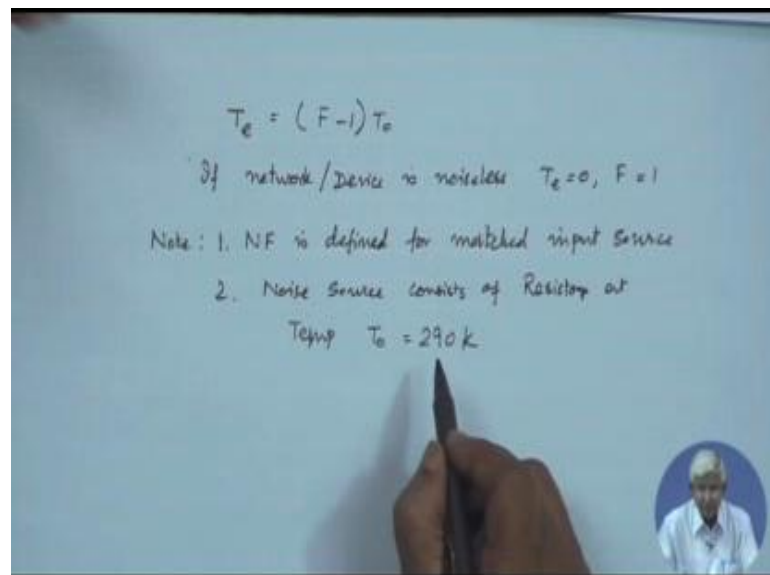 Te = (F-1) To
If network/Device is noiseless Te=0, F=1
Note: 1. NF is defined for matched input source
2. Noise source consists of Resistor at
Temp To = 290 k